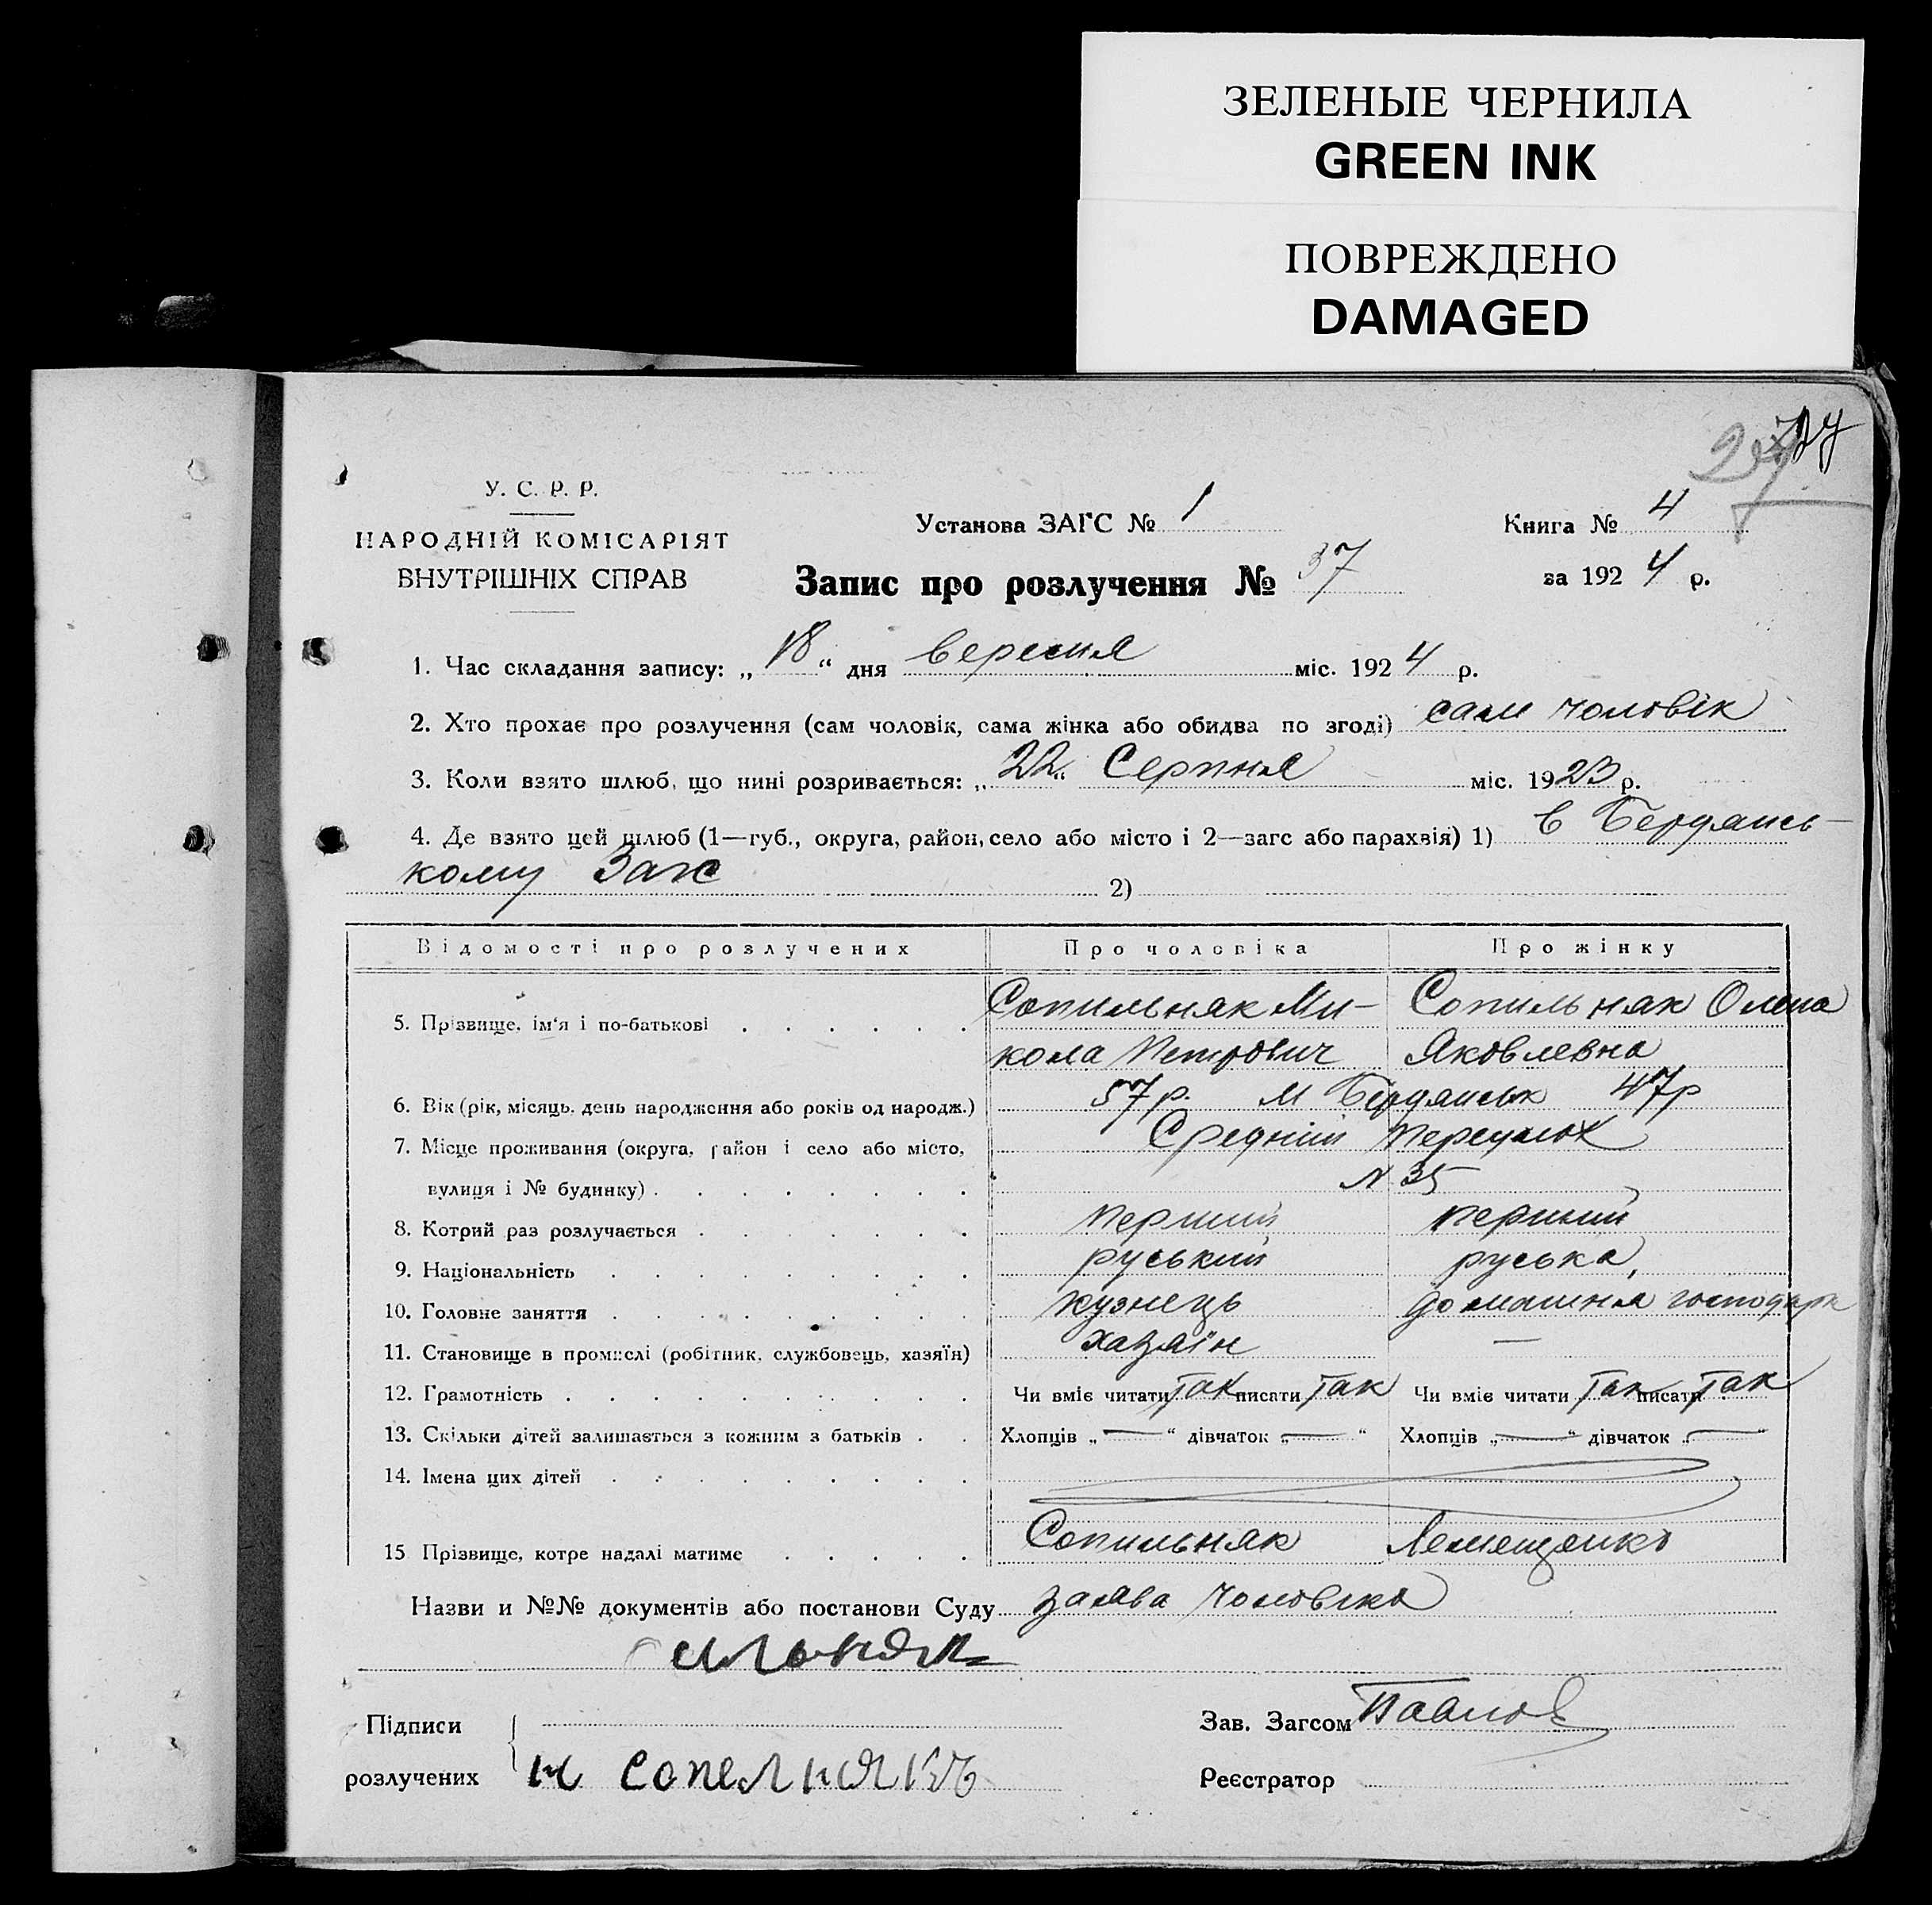 ЗЕЛЕНЫЕ ЧЕРНИЛА
GREEN INK
ПОВРЕЖДЕНО
DAMAGED
У. С. Р. Р.
НАРОДНІЙ КОМІСАРІЯТ
ВНУТРІШНІХ СПРАВ
Установа ЗАГС № 1
Книга № 4
за 1924 р.
Запис про розлучення № 37
1. Час складання запису: „18“ дня вересня міс. 1924 р.
2. Хто прохає про розлучення (сам чоловік, сама жінка або обидва по згоді) сам чоловік
3. Коли взято шлюб, що нині розривається: „22“ Серпня міс. 1923 р.
4. Де взято цей шлюб (1—губ., округа, район, село або місто і 2—загс або парахвія) 1) в Бердянсь-
кому Загс 2)
Відомості про розлучених Про чоловіка Про жінку
5. Прізвище, ім'я і по-батькові Сопильняк Ми- Сопильняк Олена
кола Петрович Яковлевна
6. Вік (рік, місяць, день народження або років од народж.) 57р. м Бердянськ 47р
7. Місце проживання (округа, район і село або місто, Средній переулок
вулиця і № будинку) N 35
8. Котрий раз розлучається перший перший
9. Національність руський руська,
10. Головне заняття кузнець домашня господарк
11. Становище в промислі (робітник, службовець, хазяїн) хазяїн —
12. Грамотність Чи вміє читати так писати так Чи вміє читати так писати так
13. Скільки дітей залишається з кожним з батьків Хлопців „—“ дівчаток „—“ Хлопців „—“ дівчаток „—“
14. Імена цих дітей
15 Прізвище, котре надалі матиме Сопильняк Лемещенко
Назви и №№ документів або постанови Суду заява чоловіка
Підписи
розлучених
Зав. Загсом Павлов
н сопелнякъ
Реєстратор